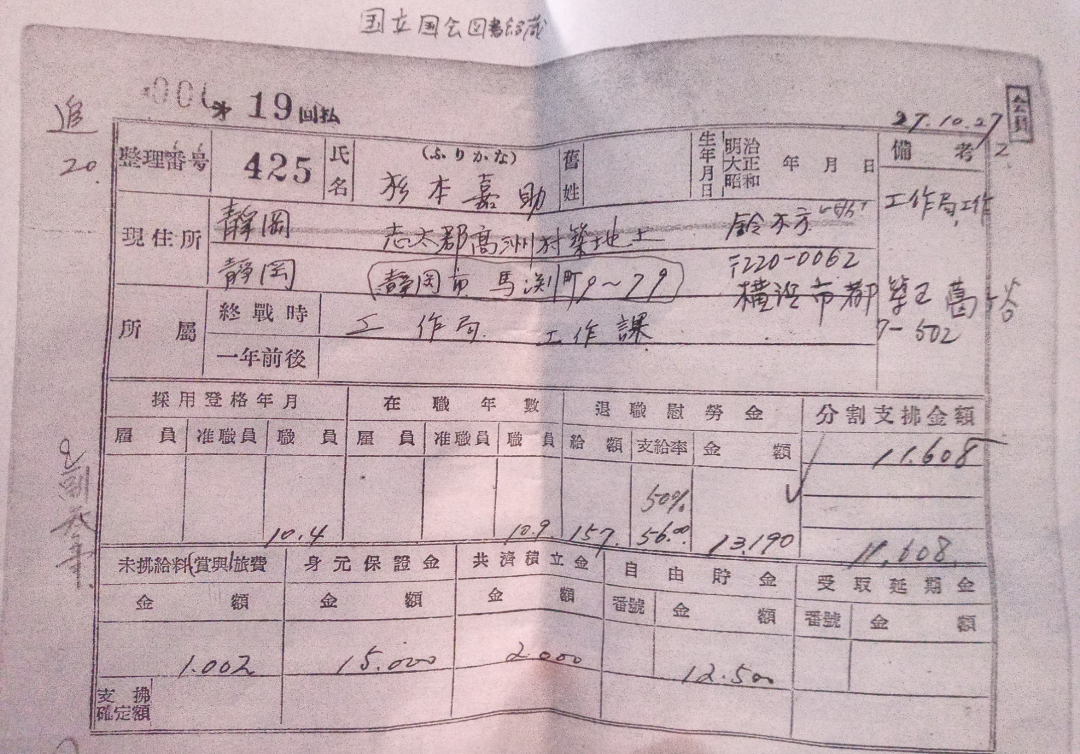 国立国会図書館蔵
19回払
会員
追
20
27.10.27
整理番号 425 氏名 (ふりかな) 杉本嘉助 舊姓 生年月日 明治 大正 昭和 年 月 日 備考 2
現住所 静岡 志太郡高洲村築地上 鈴木方 工作局工作
静岡 静岡市馬渕町9~79 〒220-0062
横浜市都筑区葛谷
7-502
所屬 終戰時 工作局 工作課
一年前後
採用登格年月 在職年數 退職慰勞金 分割支拂金額
雇員 准職員 職員 雇員 准職員 職員 給額 支給率 金額 11.608
50%
10.4 10.9 157 56.00 13.190 11.608
未拂給料(賞與)旅費 身元保證金 共濟積立金 自由貯金 受取延期金
金額 金額 金額 番號 金額 番號 金額
1.002 15.000 2.000 12.500
支拂確定額